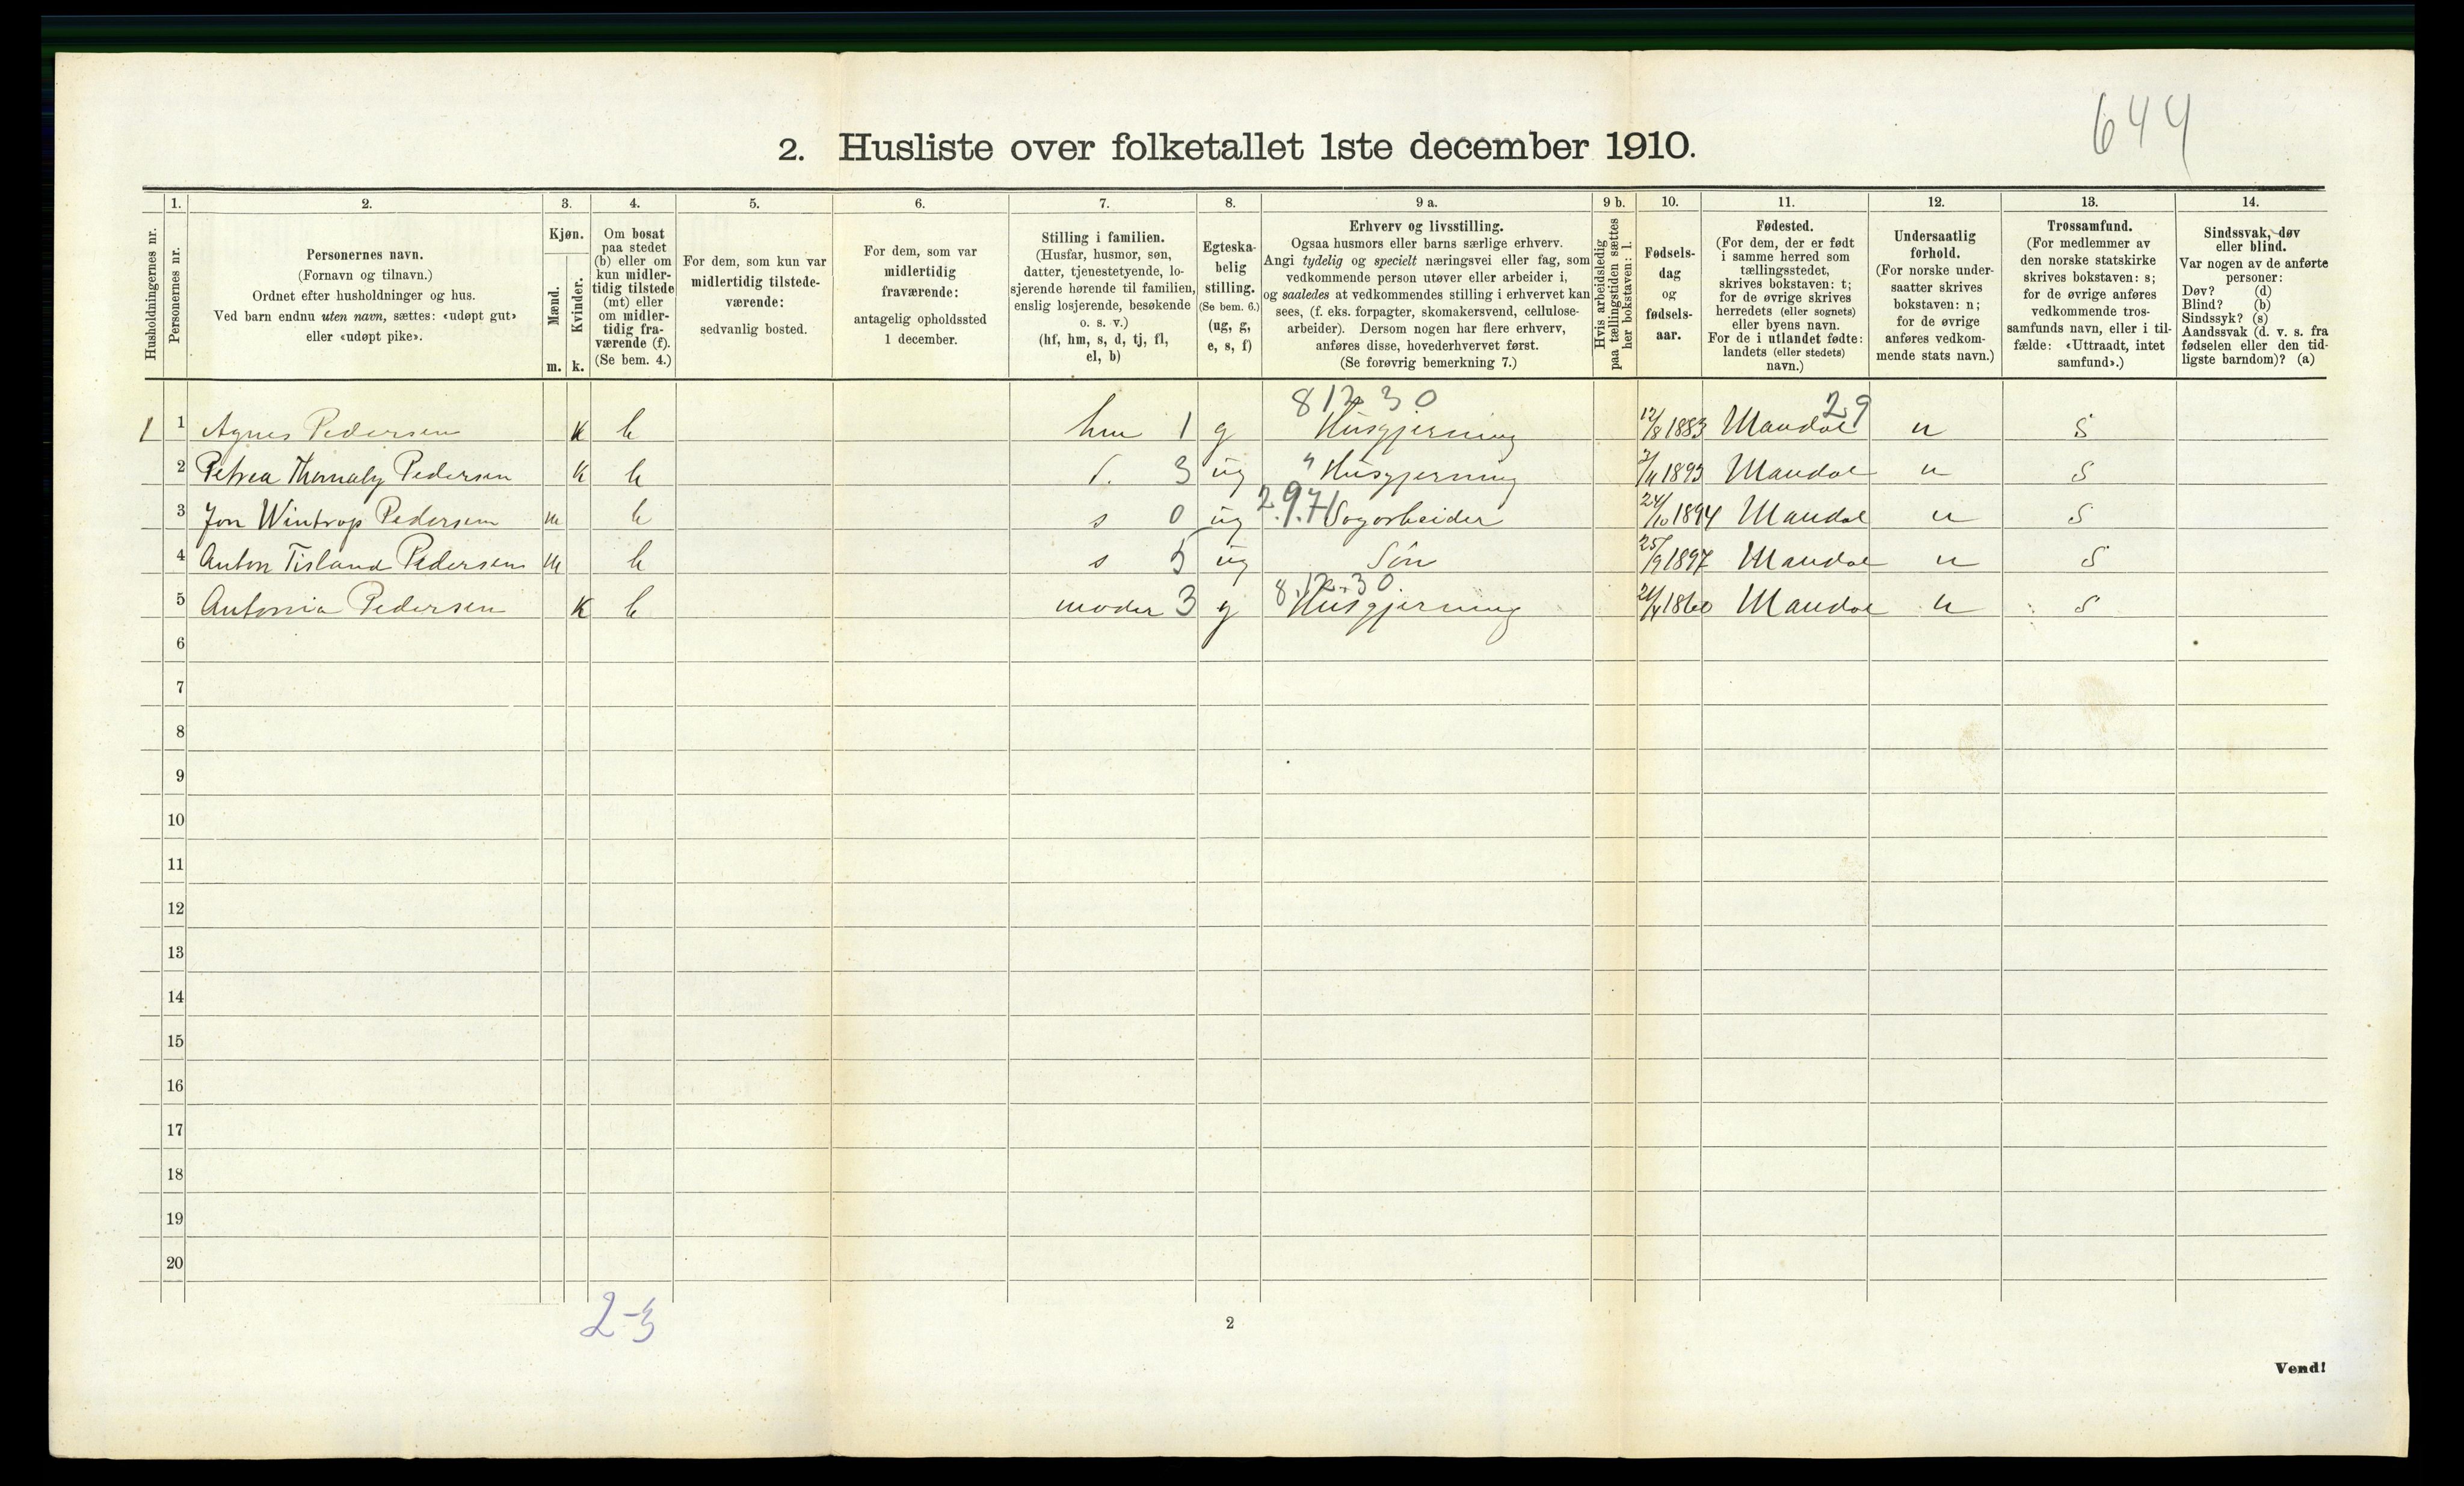 644
2. Husliste over folketallet 1ste december 1910.
Husholdningernes nr.
1.
Personernes nr.
2.
Personernes navn.
(Fornavn og tilnavn.)
Ordnet efter husholdninger og hus.
Ved barn endnu uten navn, sættes: «udøpt gut»
eller «udøpt pike».
3.
Kjøn.
Mænd.
Kvinder.
m. k.
4.
Om bosat
paa stedet
(b) eller om
kun midler-
tidig tilstede
(mt) eller
om midler-
tidig fra-
værende (f).
(Se bem. 4.)
5.
For dem, som kun var
midlertidig tilstede-
værende:
sedvanlig bosted.
6.
For dem, som var
midlertidig
fraværende:
antagelig opholdssted
1 december.
7.
Stilling i familien.
(Husfar, husmor, søn,
datter, tjenestetyende, lo-
sjerende hørende til familien,
enslig losjerende, besøkende
o. s. v.)
(hf, hm, s, d, tj, fl,
el, b)
8.
Egteska-
belig
stilling.
(Se bem. 6.)
(ug, g,
e, s, f)
9 a.
Erhverv og livsstilling.
Ogsaa husmors eller barns særlige erhverv.
Angi tydelig og specielt næringsvei eller fag, som
vedkommende person utøver eller arbeider i,
og saaledes at vedkommendes stilling i erhvervet kan
sees, (f. eks. forpagter, skomakersvend, cellulose-
arbeider). Dersom nogen har flere erhverv,
anføres disse, hovederhvervet først.
(Se forøvrig bemerkning 7.)
9 b.
Hvis arbeidsledig
paa tællingstiden sættes
her bokstaven: l.
10.
Fødsels-
dag
og
fødsels-
aar.
11.
Fødested.
(For dem, der er født
i samme herred som
tællingsstedet,
skrives bokstaven: t;
for de øvrige skrives
herredets (eller sognets)
eller byens navn.
For de i utlandet fødte:
landets (eller stedets)
navn.)
12.
Undersaatlig
forhold.
(For norske under-
saatter skrives
bokstaven: n;
for de øvrige
anføres vedkom-
mende stats navn.)
13.
Trossamfund.
(For medlemmer av
den norske statskirke
skrives bokstaven: s;
for de øvrige anføres
vedkommende tros-
samfunds navn, eller i til-
fælde: «Uttraadt, intet
samfund».)
14.
Sindssvak, døv
eller blind.
Var nogen av de anførte
personer:
Døv? (d)
Blind? (b)
Sindssyk? (s)
Aandssvak (d. v. s. fra
fødselen eller den tid-
ligste barndom)? (a)
81230 29
1 1 Agnes Pedersen K b hm 1 g Husgjerning 12/8 1883 Mandal n S
2 Petrea Pedersen K b d. 3 ug " Husgjerning 1893 Mandal n S
2.9.71
3 Jon Wintrop Pedersen m b s 0 ug Sagarbeider 24/10 1894 Mandal n S
4 Anton Tisland Pedersen m b s 5 ug Søn 25/9 1897 Mandal n S
8.12.30.
5 Antonia Pedersen K b moder 3 g Husgjerning 1860 Mandal n S
6
7
8
9
10
11
12
13
14
15
16
17
18
19
20
2-3
2
Vend!